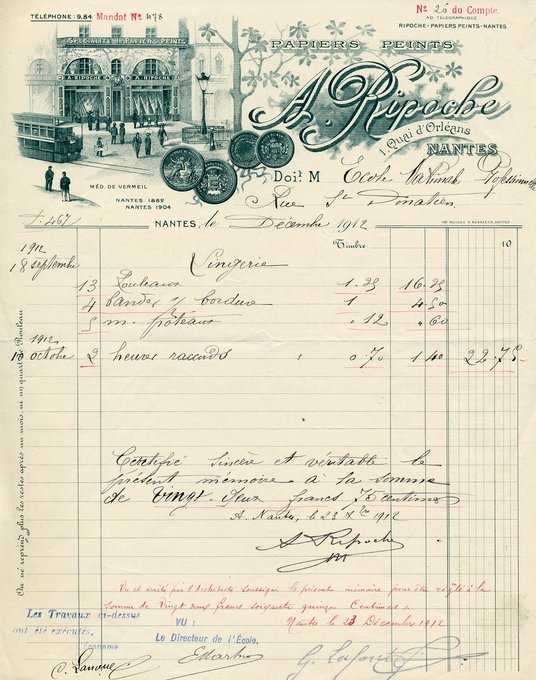 TÉLÉPHONE : 9.84 Mandat N° 478
N° 26 du Compte.
AD. TÉLÉGRAPHIQUE
RIPOCHE-PAPIERS PEINTS-NANTES
SPÉCIALITÉ DE PAPIERS PEINTS
A. RIPOCHE A. RIPOCHE
PAPIERS PEINTS
A. Ripoche
1, Quai d'Orléans
NANTES
MÉD. DE VERMEIL
NANTES 1882
NANTES 1904
Doit M Ecole Nationale Professionnelle
Rue St Donatien
f. 467
NANTES, le Décembre 1912
Timbre 10
1912
18 septembre Lingerie
13 Rouleaux 1.25 16.25
4 bandes ½ bordure 1 4.50
5 m. poteaux " 12 " 60
1912
10 octobre 2 heures raccords 0.70 1.40 22.75
On ne reprend plus les restes après un mois, ni un quart de Rouleau.
Certifié sincère et véritable le
présent mémoire à la somme
de Vingt deux francs 75 centimes
A. Nantes, le 23 Xbre 1912
A. Ripoche
Vu et arrêté par l'Architecte soussigné le présent mémoire pour être réglé à la
somme de Vingt deux francs soixante quinze Centimes.
Nantes le 23 Décembre 1912
Les Travaux ci-dessus
ont été exécutés.
L'Econome
VU :
Le Directeur de l'École,